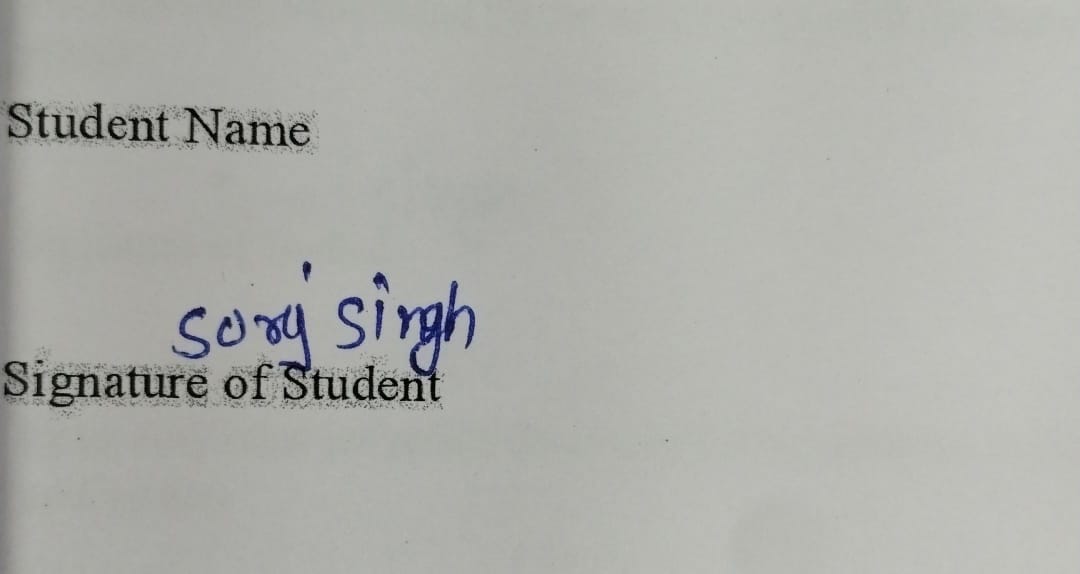 Student Name
singh
Signature of Student